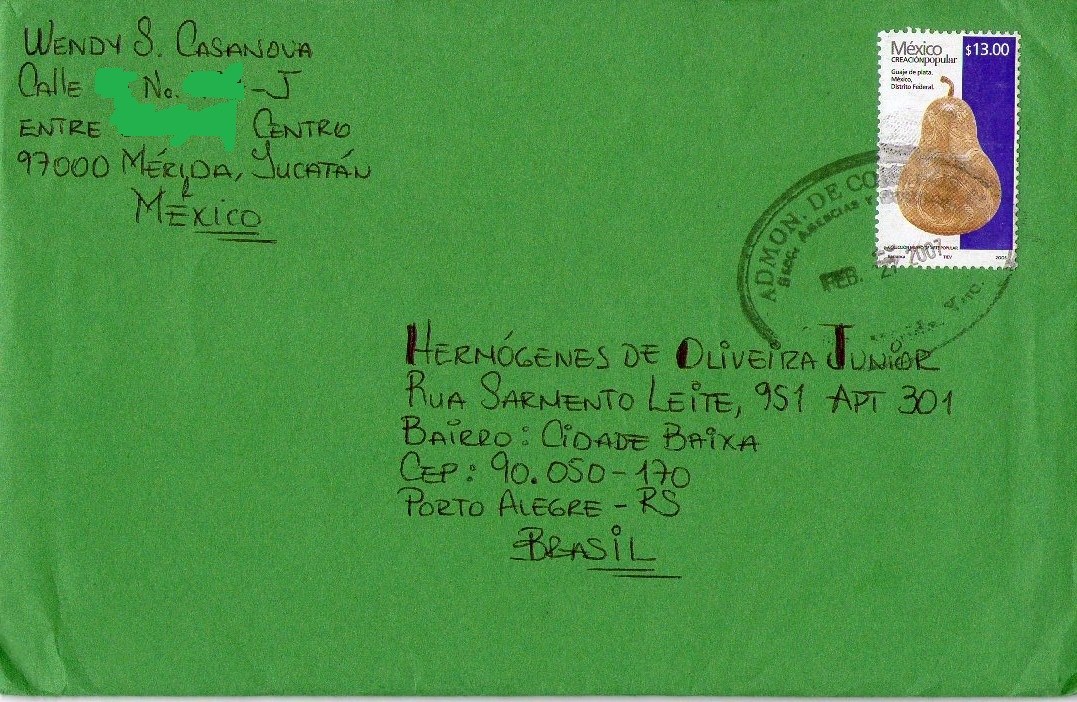 WENDY S. CASANOVA
Calle No. -J
ENTRE CENTRO
97000 MÉRIDA, YUCATÁN
MÉXICO
México $13.00
CREACIÓNpopular
Guaje de plata.
México,
Distrito Federal.
ADMON. DE
FEB. 2007
HERMÓGENES DE OLIVEIRA JUNIOR
RUA SARMENTO LEITE, 951 APT 301
BAIRRO: CIDADE BAIXA
CEP: 90.050-170
PORTO ALEGRE - RS
BRASIL